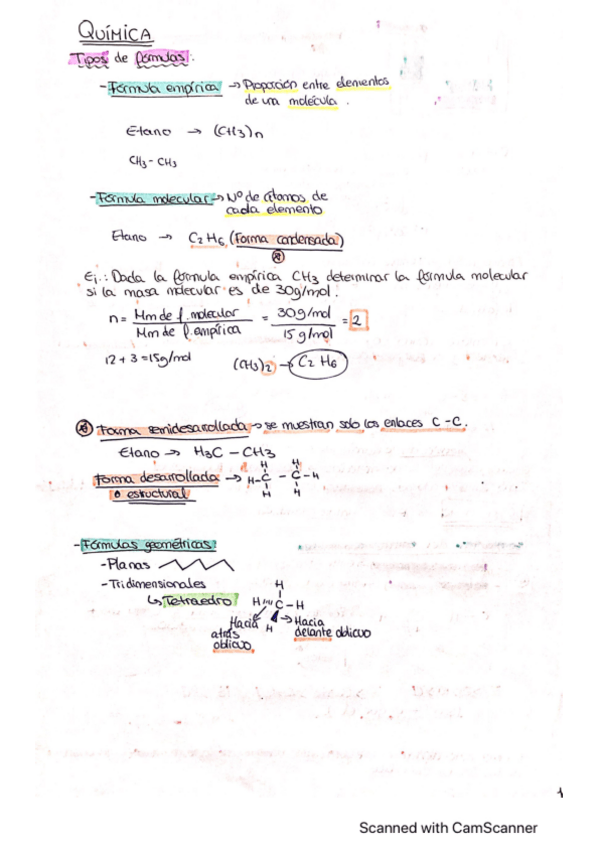 QUÍMICA
Tipos de fórmulas:
- Fórmula empírica → Proporción entre elementos
de una molécula.
Etano → (CH3)n
CH3 - CH3
- Fórmula molecular → Nº de átomos de
cada elemento
Etano → C2H6 (Forma condensada)
Ej.: Dada la fórmula empírica CH3 determinar la fórmula molecular
si la masa molecular es de 30g/mol.
n = Mm de f. molecular / Mm de f. empírica = 30g/mol / 15g/mol = 2
12 + 3 = 15g/mol
(CH3)2 → C2H6
Forma semidesarrollada → se muestran solo los enlaces C-C.
Etano → H3C - CH3
Forma desarrollada →
H H
H - C - C - H
o estructural
H H
- Fórmulas geométricas:
- Planas
- Tridimensionales
↳ Tetraedro
H
H C - H
H
Hacia
atrás
oblicuo
→ Hacia
delante oblicuo
1
Scanned with CamScanner